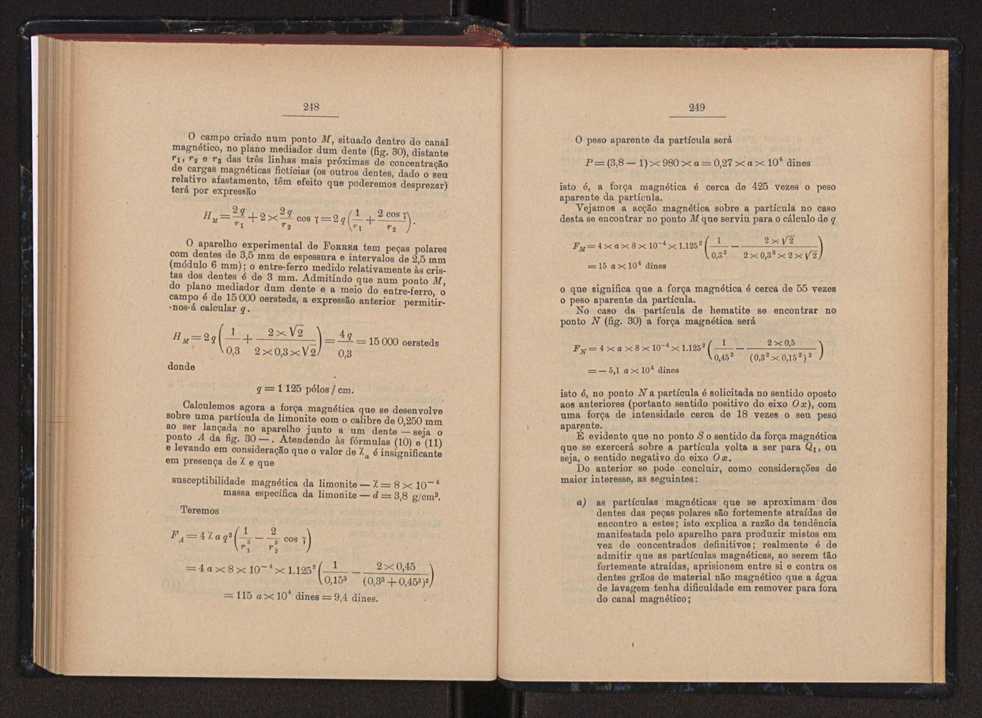 248
O campo criado num ponto M, situado dentro do canal
magnético, no plano mediador dum dente (fig. 30), distante
r₁, r₂ e r₃ das três linhas mais próximas de concentração
de cargas magnéticas fictícias (os outros dentes, dado o seu
relativo afastamento, têm efeito que poderemos desprezar)
terá por expressão
H_M = 2q/r₁ + 2 × 2q/r₂ cos γ = 2q (1/r₁ + 2 cos γ/r₂).
O aparelho experimental de FORRER tem peças polares
com dentes de 3,5 mm de espessura e intervalos de 2,5 mm
(módulo 6 mm); o entre-ferro medido relativamente às cris-
tas dos dentes é de 3 mm. Admitindo que num ponto M,
do plano mediador dum dente e a meio do entre-ferro, o
campo é de 15 000 oersteds, a expressão anterior permitir-
-nos-á calcular q.
H_M = 2q (1/0,3 + 2×√2/2×0,3×√2) = 4q/0,3 = 15 000 oersteds
donde
q = 1 125 pólos / cm.
Calculemos agora a força magnética que se desenvolve
sobre uma partícula de limonite com o calibre de 0,250 mm
ao ser lançada no aparelho junto a um dente — seja o
ponto A da fig. 30 —. Atendendo às fórmulas (10) e (11)
e levando em consideração que o valor de χₐ é insignificante
em presença de χ e que
susceptibilidade magnética da limonite — χ = 8 × 10⁻⁴
massa específica da limonite — d = 3,8 g/cm³.
Teremos
F_A = 4 χ a q² (1/r₁³ − 2/r₂³ cos γ)
= 4 a × 8 × 10⁻⁴ × 1.125² (1/0,15³ − 2×0,45/(0,3³ + 0,45²)²)
= 115 a × 10⁴ dines = 9,4 dines.
249
O peso aparente da partícula será
P = (3,8 — 1) × 980 × a = 0,27 × a × 10⁴ dines
isto é, a força magnética é cerca de 425 vezes o peso
aparente da partícula.
Vejamos a acção magnética sobre a partícula no caso
desta se encontrar no ponto M que serviu para o cálculo de q
F_M = 4 × a × 8 × 10⁻⁴ × 1.125² (1/0,3³ − 2 × √2/2 × 0,3³ × 2 × √2)
= 15 a × 10⁴ dines
o que significa que a força magnética é cerca de 55 vezes
o peso aparente da partícula.
No caso da partícula de hematite se encontrar no
ponto N (fig. 30) a força magnética será
F_N = 4 × a × 8 × 10⁻⁴ × 1.125² (1/0,45² − 2 × 0,5/(0,3² × 0,15²)²)
= — 5,1 a × 10⁴ dines
isto é, no ponto N a partícula é solicitada no sentido oposto
aos anteriores (portanto sentido positivo do eixo Ox), com
uma força de intensidade cerca de 18 vezes o seu peso
aparente.
É evidente que no ponto S o sentido da força magnética
que se exercerá sobre a partícula volta a ser para Q₁, ou
seja, o sentido negativo do eixo Ox.
Do anterior se pode concluir, como considerações de
maior interesse, as seguintes:
a) as partículas magnéticas que se aproximam dos
dentes das peças polares são fortemente atraídas de
encontro a estes; isto explica a razão da tendência
manifestada pelo aparelho para produzir mistos em
vez de concentrados definitivos; realmente é de
admitir que as partículas magnéticas, ao serem tão
fortemente atraídas, aprisionem entre si e contra os
dentes grãos de material não magnético que a água
de lavagem tenha dificuldade em remover para fora
do canal magnético;